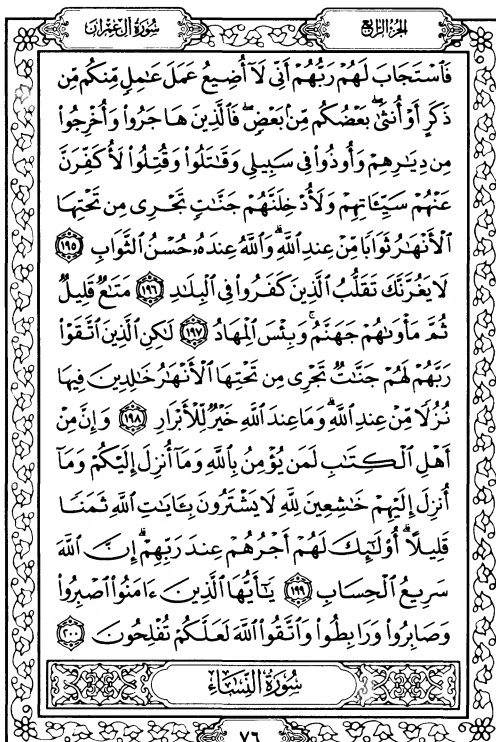 سورة آل عمران
الجزء الرابع
فَٱسْتَجَابَ لَهُمْ رَبُّهُمْ أَنِّى لَآ أُضِيعُ عَمَلَ عَٰمِلٍ مِّنكُم مِّن
ذَكَرٍ أَوْ أُنثَىٰ ۖ بَعْضُكُم مِّنۢ بَعْضٍ ۖ فَٱلَّذِينَ هَاجَرُوا۟ وَأُخْرِجُوا۟
مِن دِيَٰرِهِمْ وَأُوذُوا۟ فِى سَبِيلِى وَقَٰتَلُوا۟ وَقُتِلُوا۟ لَأُكَفِّرَنَّ
عَنْهُمْ سَيِّـَٔاتِهِمْ وَلَأُدْخِلَنَّهُمْ جَنَّٰتٍ تَجْرِى مِن تَحْتِهَا
ٱلْأَنْهَٰرُ ثَوَابًا مِّنْ عِندِ ٱللَّهِ ۗ وَٱللَّهُ عِندَهُۥ حُسْنُ ٱلثَّوَابِ ١٩٥
لَا يَغُرَّنَّكَ تَقَلُّبُ ٱلَّذِينَ كَفَرُوا۟ فِى ٱلْبِلَٰدِ ١٩٦ مَتَٰعٌ قَلِيلٌ
ثُمَّ مَأْوَىٰهُمْ جَهَنَّمُ ۚ وَبِئْسَ ٱلْمِهَادُ ١٩٧ لَٰكِنِ ٱلَّذِينَ ٱتَّقَوْا۟
رَبَّهُمْ لَهُمْ جَنَّٰتٌ تَجْرِى مِن تَحْتِهَا ٱلْأَنْهَٰرُ خَٰلِدِينَ فِيهَا
نُزُلًا مِّنْ عِندِ ٱللَّهِ ۗ وَمَا عِندَ ٱللَّهِ خَيْرٌ لِّلْأَبْرَارِ ١٩٨ وَإِنَّ مِنْ
أَهْلِ ٱلْكِتَٰبِ لَمَن يُؤْمِنُ بِٱللَّهِ وَمَآ أُنزِلَ إِلَيْكُمْ وَمَآ
أُنزِلَ إِلَيْهِمْ خَٰشِعِينَ لِلَّهِ لَا يَشْتَرُونَ بِـَٔايَٰتِ ٱللَّهِ ثَمَنًا
قَلِيلًا ۗ أُو۟لَٰٓئِكَ لَهُمْ أَجْرُهُمْ عِندَ رَبِّهِمْ ۗ إِنَّ ٱللَّهَ
سَرِيعُ ٱلْحِسَابِ ١٩٩ يَٰٓأَيُّهَا ٱلَّذِينَ ءَامَنُوا۟ ٱصْبِرُوا۟
وَصَابِرُوا۟ وَرَابِطُوا۟ وَٱتَّقُوا۟ ٱللَّهَ لَعَلَّكُمْ تُفْلِحُونَ ٢٠٠
سُورَةُ النِّسَاءِ
٧٦